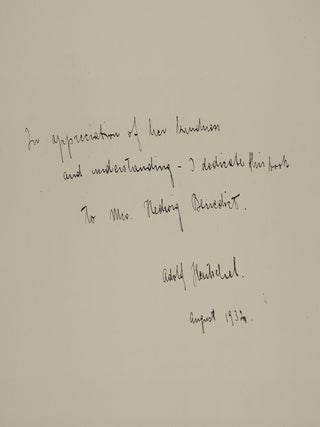 In appreciation of her kindness
and understanding – I dedicate this book
to Mrs. Hedwig Benedict.
Adolf
August